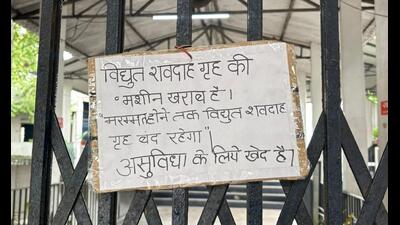 विद्युत शवदाह गृह की
"मशीन खराब है।
"मरम्मत होने तक विद्युत शवदाह
गृह बंद रहेगा"।
असुविधा के लिये खेद है।